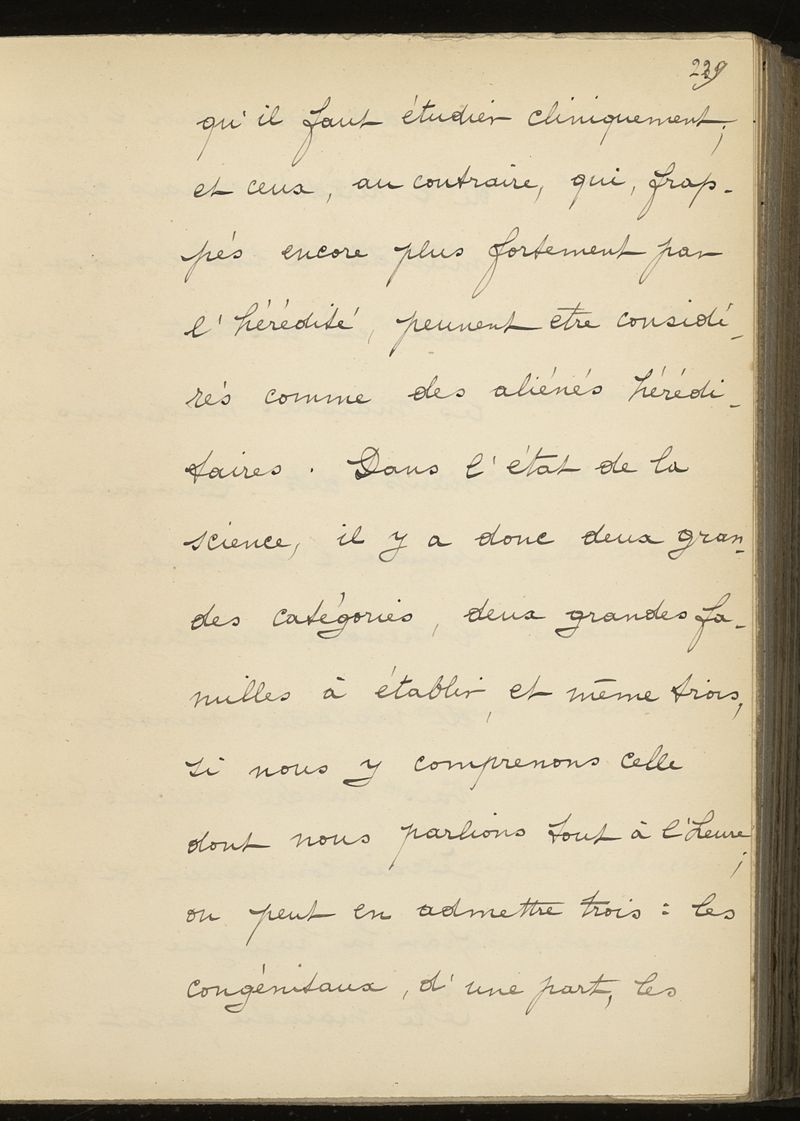 239
qu'il faut étudier cliniquement;
et ceux, au contraire, qui, frap-
pés encore plus fortement par
l'hérédité, peuvent être considé-
rés comme des aliénés hérédi-
taires. Dans l'état de la
science, il y a donc deux gran-
des catégories, deux grandes fa-
milles à établir, et même trois,
si nous y comprenons celle
dont nous parlions tout à l'heure;
on peut en admettre trois: les
congénitaux, d'une part, les